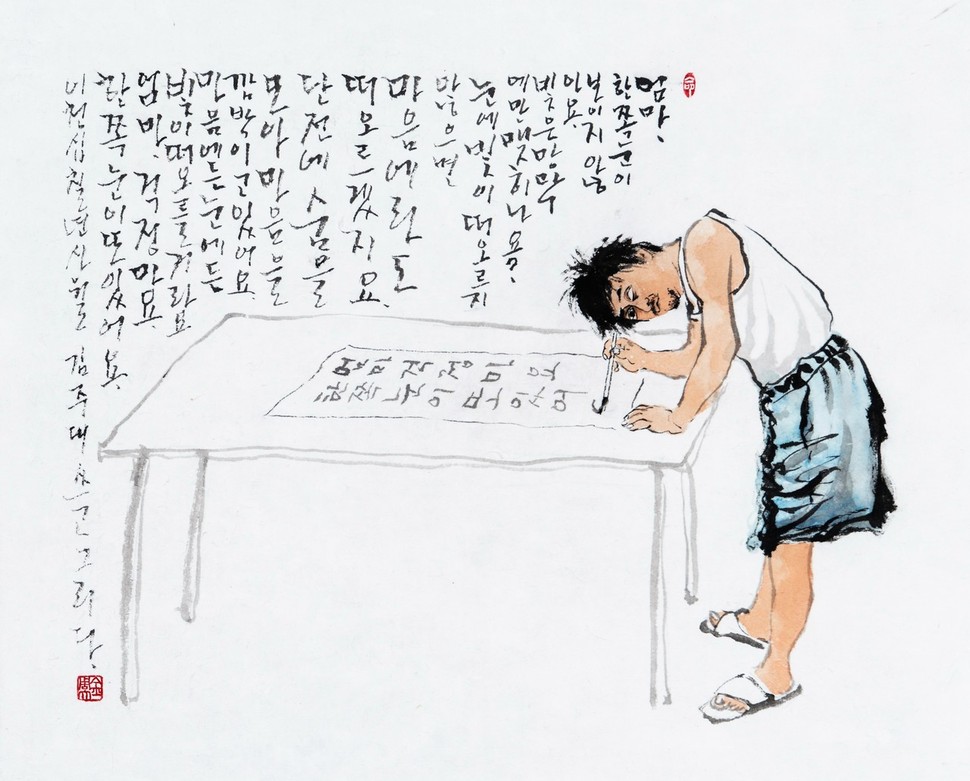 엄마,
한쪽 눈이
보이지 않
아요.
빛은 망막
에만 맺히나요?
눈에 빛이 떠오르지
않으면
마음에라도
떠오르겠지요.
단전에 숨을
모아 마음을
깜박이고 있어요.
마음에든 눈에든
빛이 떠오를거라요
엄마, 걱정마요.
한쪽 눈이 또 있어요.
이천십칠년 사월 김주대 쓰고 그리다.
한쪽 눈이 또 있어